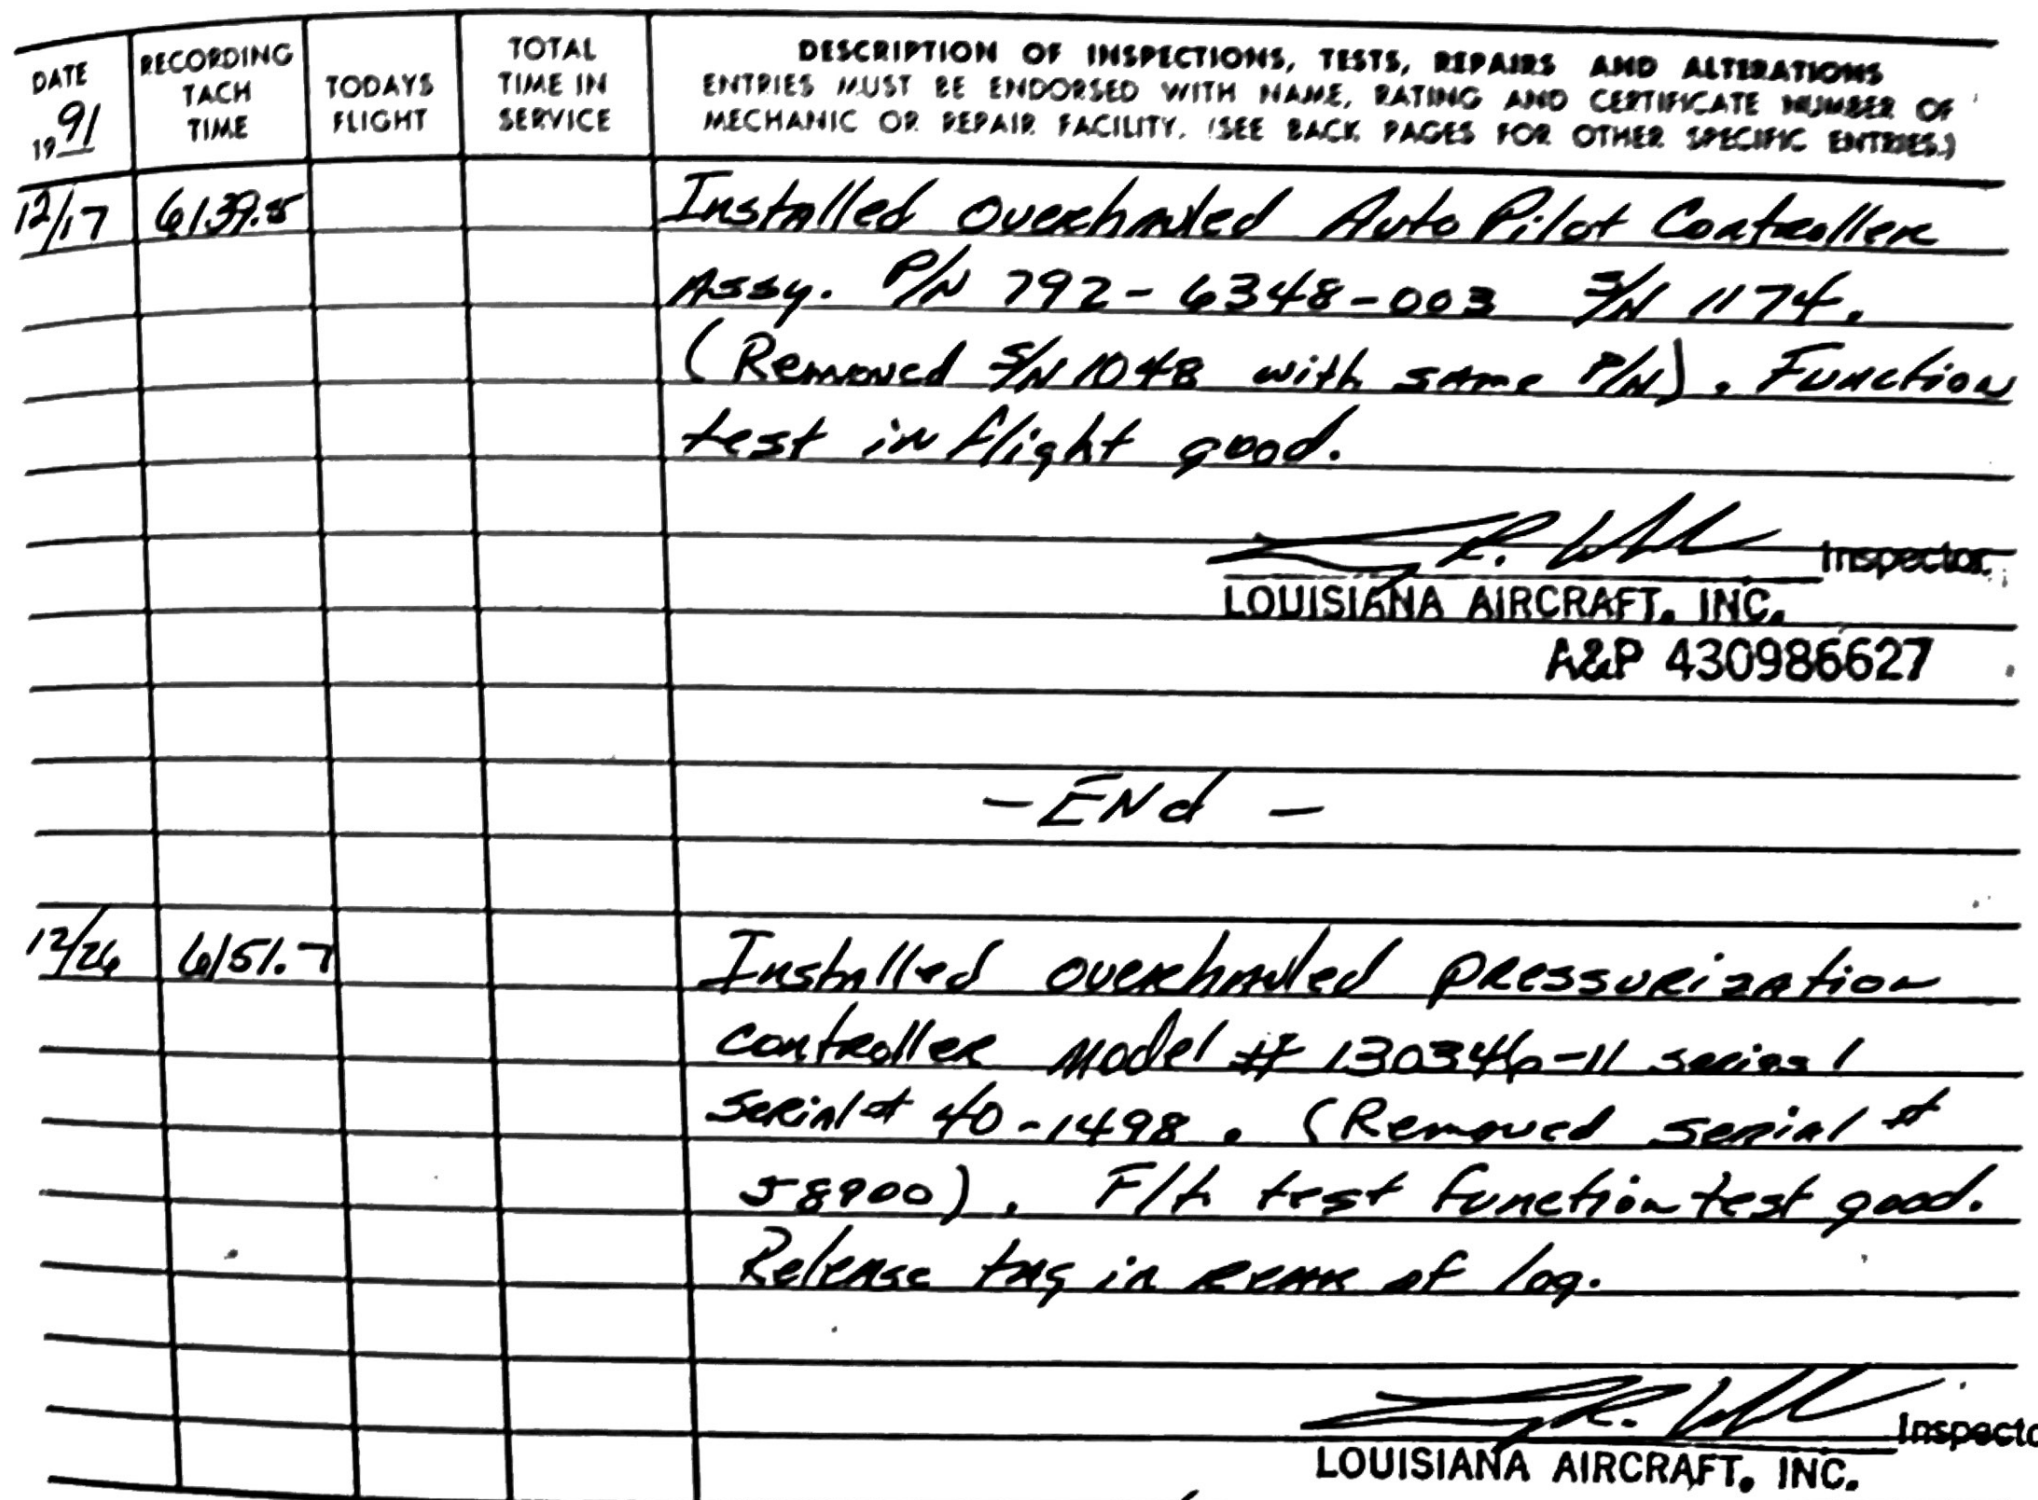 DATE 19 91
RECORDING TACH TIME
TODAYS FLIGHT
TOTAL TIME IN SERVICE
DESCRIPTION OF INSPECTIONS, TESTS, REPAIRS AND ALTERATIONS
ENTRIES MUST BE ENDORSED WITH NAME, RATING AND CERTIFICATE NUMBER OF
MECHANIC OR REPAIR FACILITY. (SEE BACK PAGES FOR OTHER SPECIFIC ENTRIES.)
12/17 6139.5 Installed overhauled Auto Pilot Controller
Assy. P/N 792-6348-003 S/N 1174.
(Removed S/N 1048 with same P/N). Function
test in flight good.
Inspector
LOUISIANA AIRCRAFT, INC.
A&P 430986627
- END -
12/26 6151.7 Installed overhauled pressurization
controller model # 130346-11 series 1
serial # 40-1498. (Removed serial #
58900). F/t test function test good.
Release tag in rear of log.
Inspecto
LOUISIANA AIRCRAFT, INC.